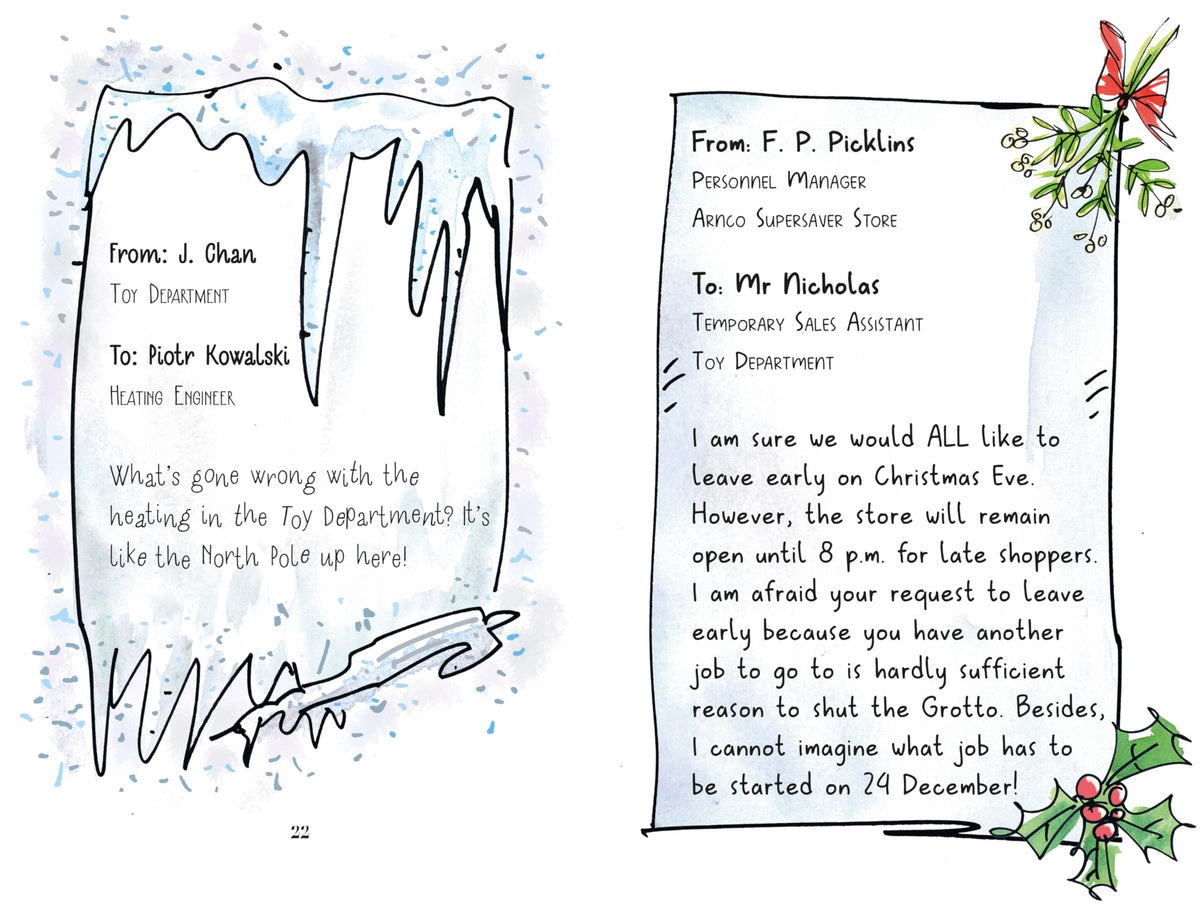 From: J. Chan
Toy Department
To: Piotr Kowalski
Heating Engineer
What's gone wrong with the
heating in the Toy Department? It's
like the North Pole up here!
22
From: F. P. Picklins
Personnel Manager
Arnco Supersaver Store
To: Mr Nicholas
Temporary Sales Assistant
Toy Department
I am sure we would ALL like to
leave early on Christmas Eve.
However, the store will remain
open until 8 p.m. for late shoppers.
I am afraid your request to leave
early because you have another
job to go to is hardly sufficient
reason to shut the Grotto. Besides,
I cannot imagine what job has to
be started on 24 December!